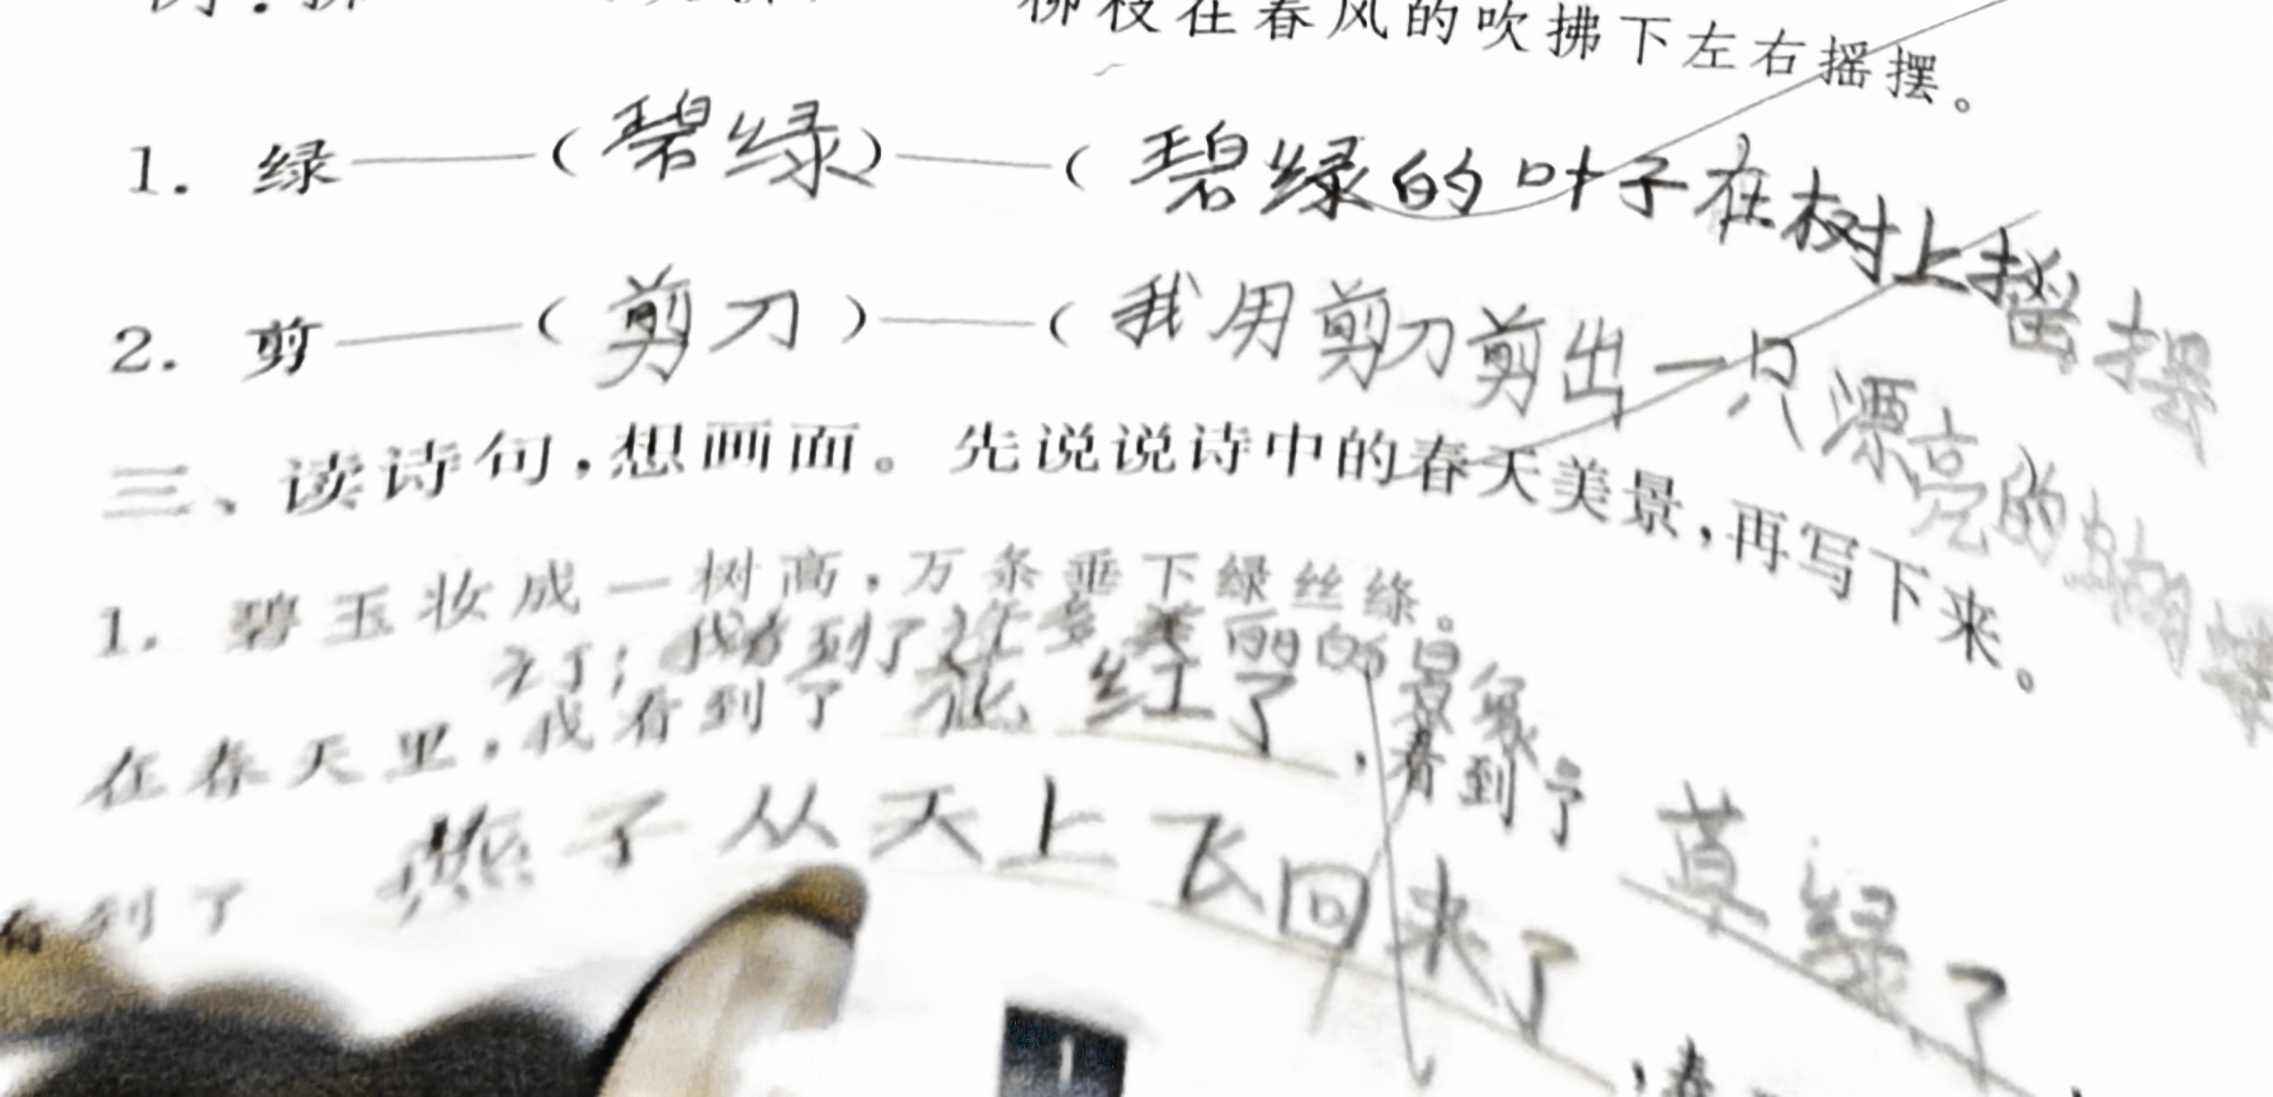 柳枝在春风的吹拂下左右摇摆。
1. 绿——(碧绿)——(碧绿的叶子在树上摇摆
2. 剪——(剪刀)——(我用剪刀剪出一只漂亮的蝴蝶
三、读诗句,想画面。先说说诗中的春天美景,再写下来。
1. 碧玉妆成一树高,万条垂下绿丝绦。
我看到了许多美丽的景象
在春天里,我看到了 花红了,看到了 草绿了
看到了 燕子从天上飞回来了,春